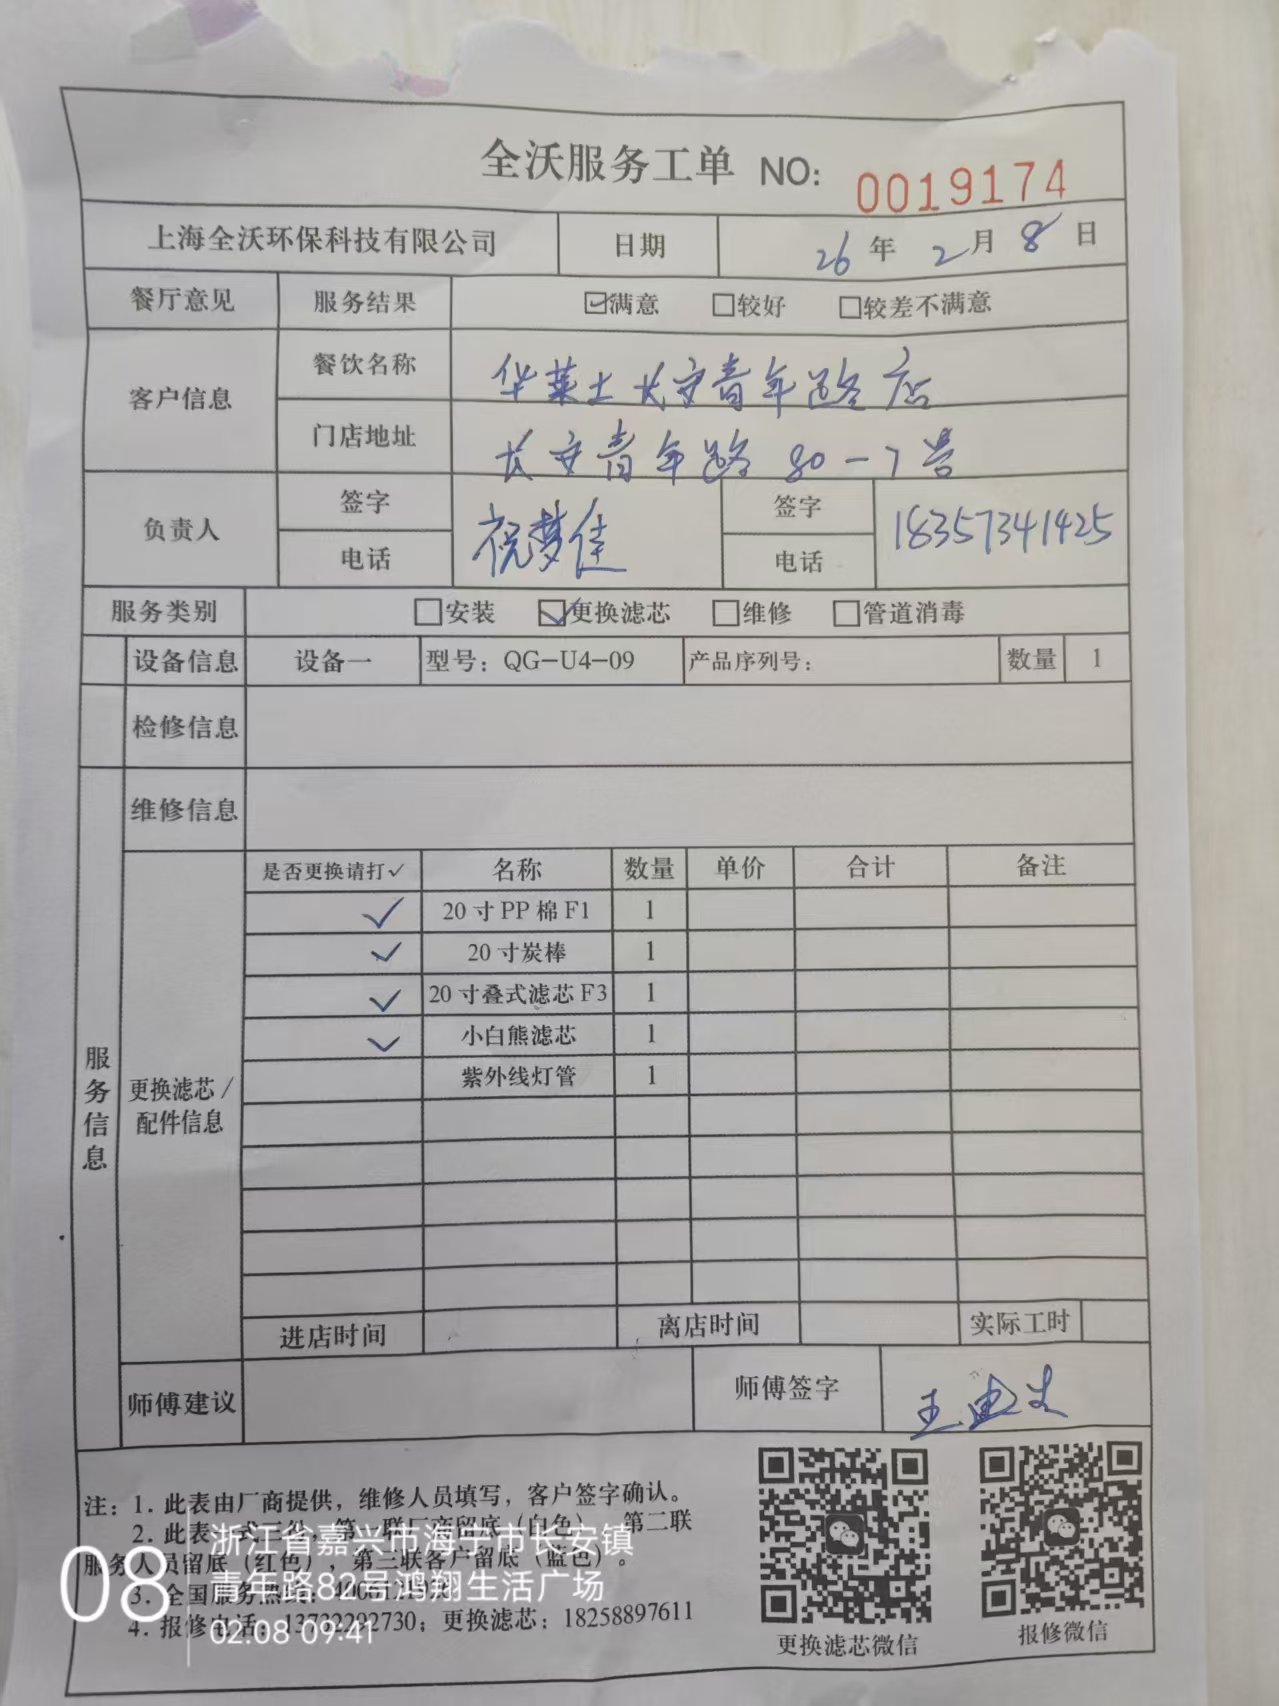 全沃服务工单 NO: 0019174
上海全沃环保科技有限公司 日期 26年2月8日
餐厅意见 服务结果 ☑满意 □较好 □较差不满意
客户信息 餐饮名称 华莱士长安青年路店
门店地址 长安青年路80-7号
负责人 签字 祝梦佳 签字 18357341425
电话 电话
服务类别 □安装 ☑更换滤芯 □维修 □管道消毒
设备信息 设备一 型号：QG-U4-09 产品序列号： 数量 1
检修信息
维修信息
服务信息
更换滤芯/配件信息
是否更换请打✓ 名称 数量 单价 合计 备注
✓ 20寸PP棉F1 1
✓ 20寸炭棒 1
✓ 20寸叠式滤芯F3 1
✓ 小白熊滤芯 1
紫外线灯管 1
进店时间 离店时间 实际工时
师傅建议 师傅签字 王
注：1. 此表由厂商提供，维修人员填写，客户签字确认。
2. 此表一式三份，第一联厂商留底（白色），第二联
服务人员留底（红色），第三联客户留底（蓝色）。
3. 全国服务热线：
4. 报修电话：13732292730；更换滤芯：18258897611
更换滤芯微信 报修微信
08
浙江省嘉兴市海宁市长安镇
青年路82号鸿翔生活广场
02.08 09:41